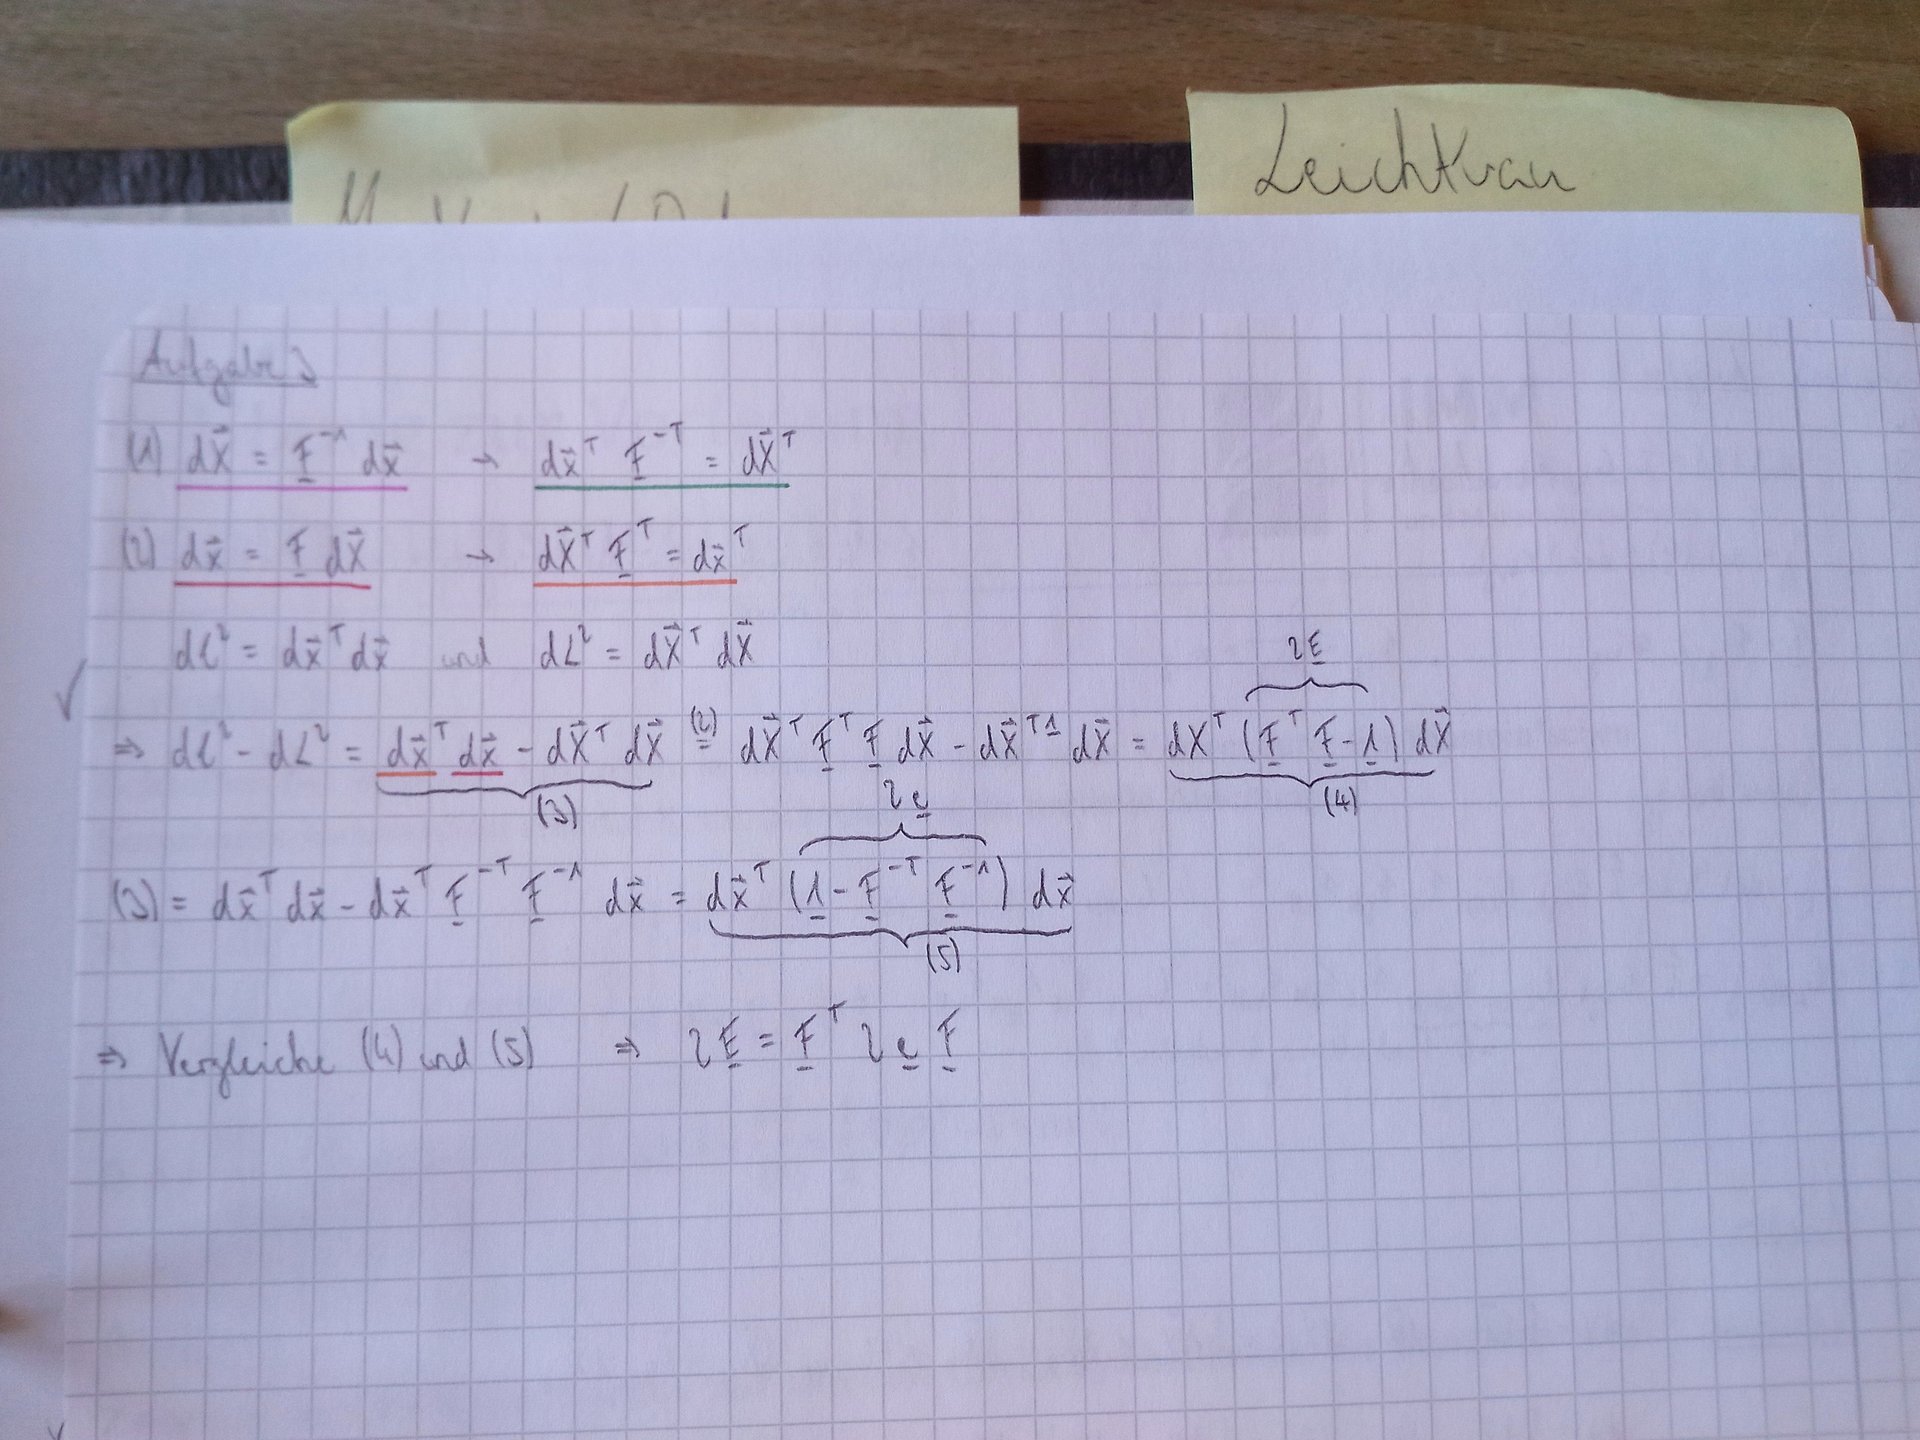 Leichtkran
Aufgabe 3
(1) dX⃗ = F̲⁻¹ dx⃗ → dx⃗ᵀ F̲⁻ᵀ = dX⃗ᵀ
(2) dx⃗ = F̲ dX⃗ → dX⃗ᵀ F̲ᵀ = dx⃗ᵀ
dl² = dx⃗ᵀ dx⃗ und dL² = dX⃗ᵀ dX⃗
2E̲
✓
⇒ dl² - dL² = dx⃗ᵀ dx⃗ - dX⃗ᵀ dX⃗ =⁽²⁾ dX⃗ᵀ F̲ᵀ F̲ dX⃗ - dX⃗ᵀ 1̲ dX⃗ = dXᵀ (F̲ᵀ F̲ - 1̲) dX⃗
(3) (4)
2e̲
(3) = dx⃗ᵀ dx⃗ - dx⃗ᵀ F̲⁻ᵀ F̲⁻¹ dx⃗ = dx⃗ᵀ (1̲ - F̲⁻ᵀ F̲⁻¹) dx⃗
(5)
⇒ Vergleiche (4) und (5) ⇒ 2E̲ = F̲ᵀ 2e̲ F̲